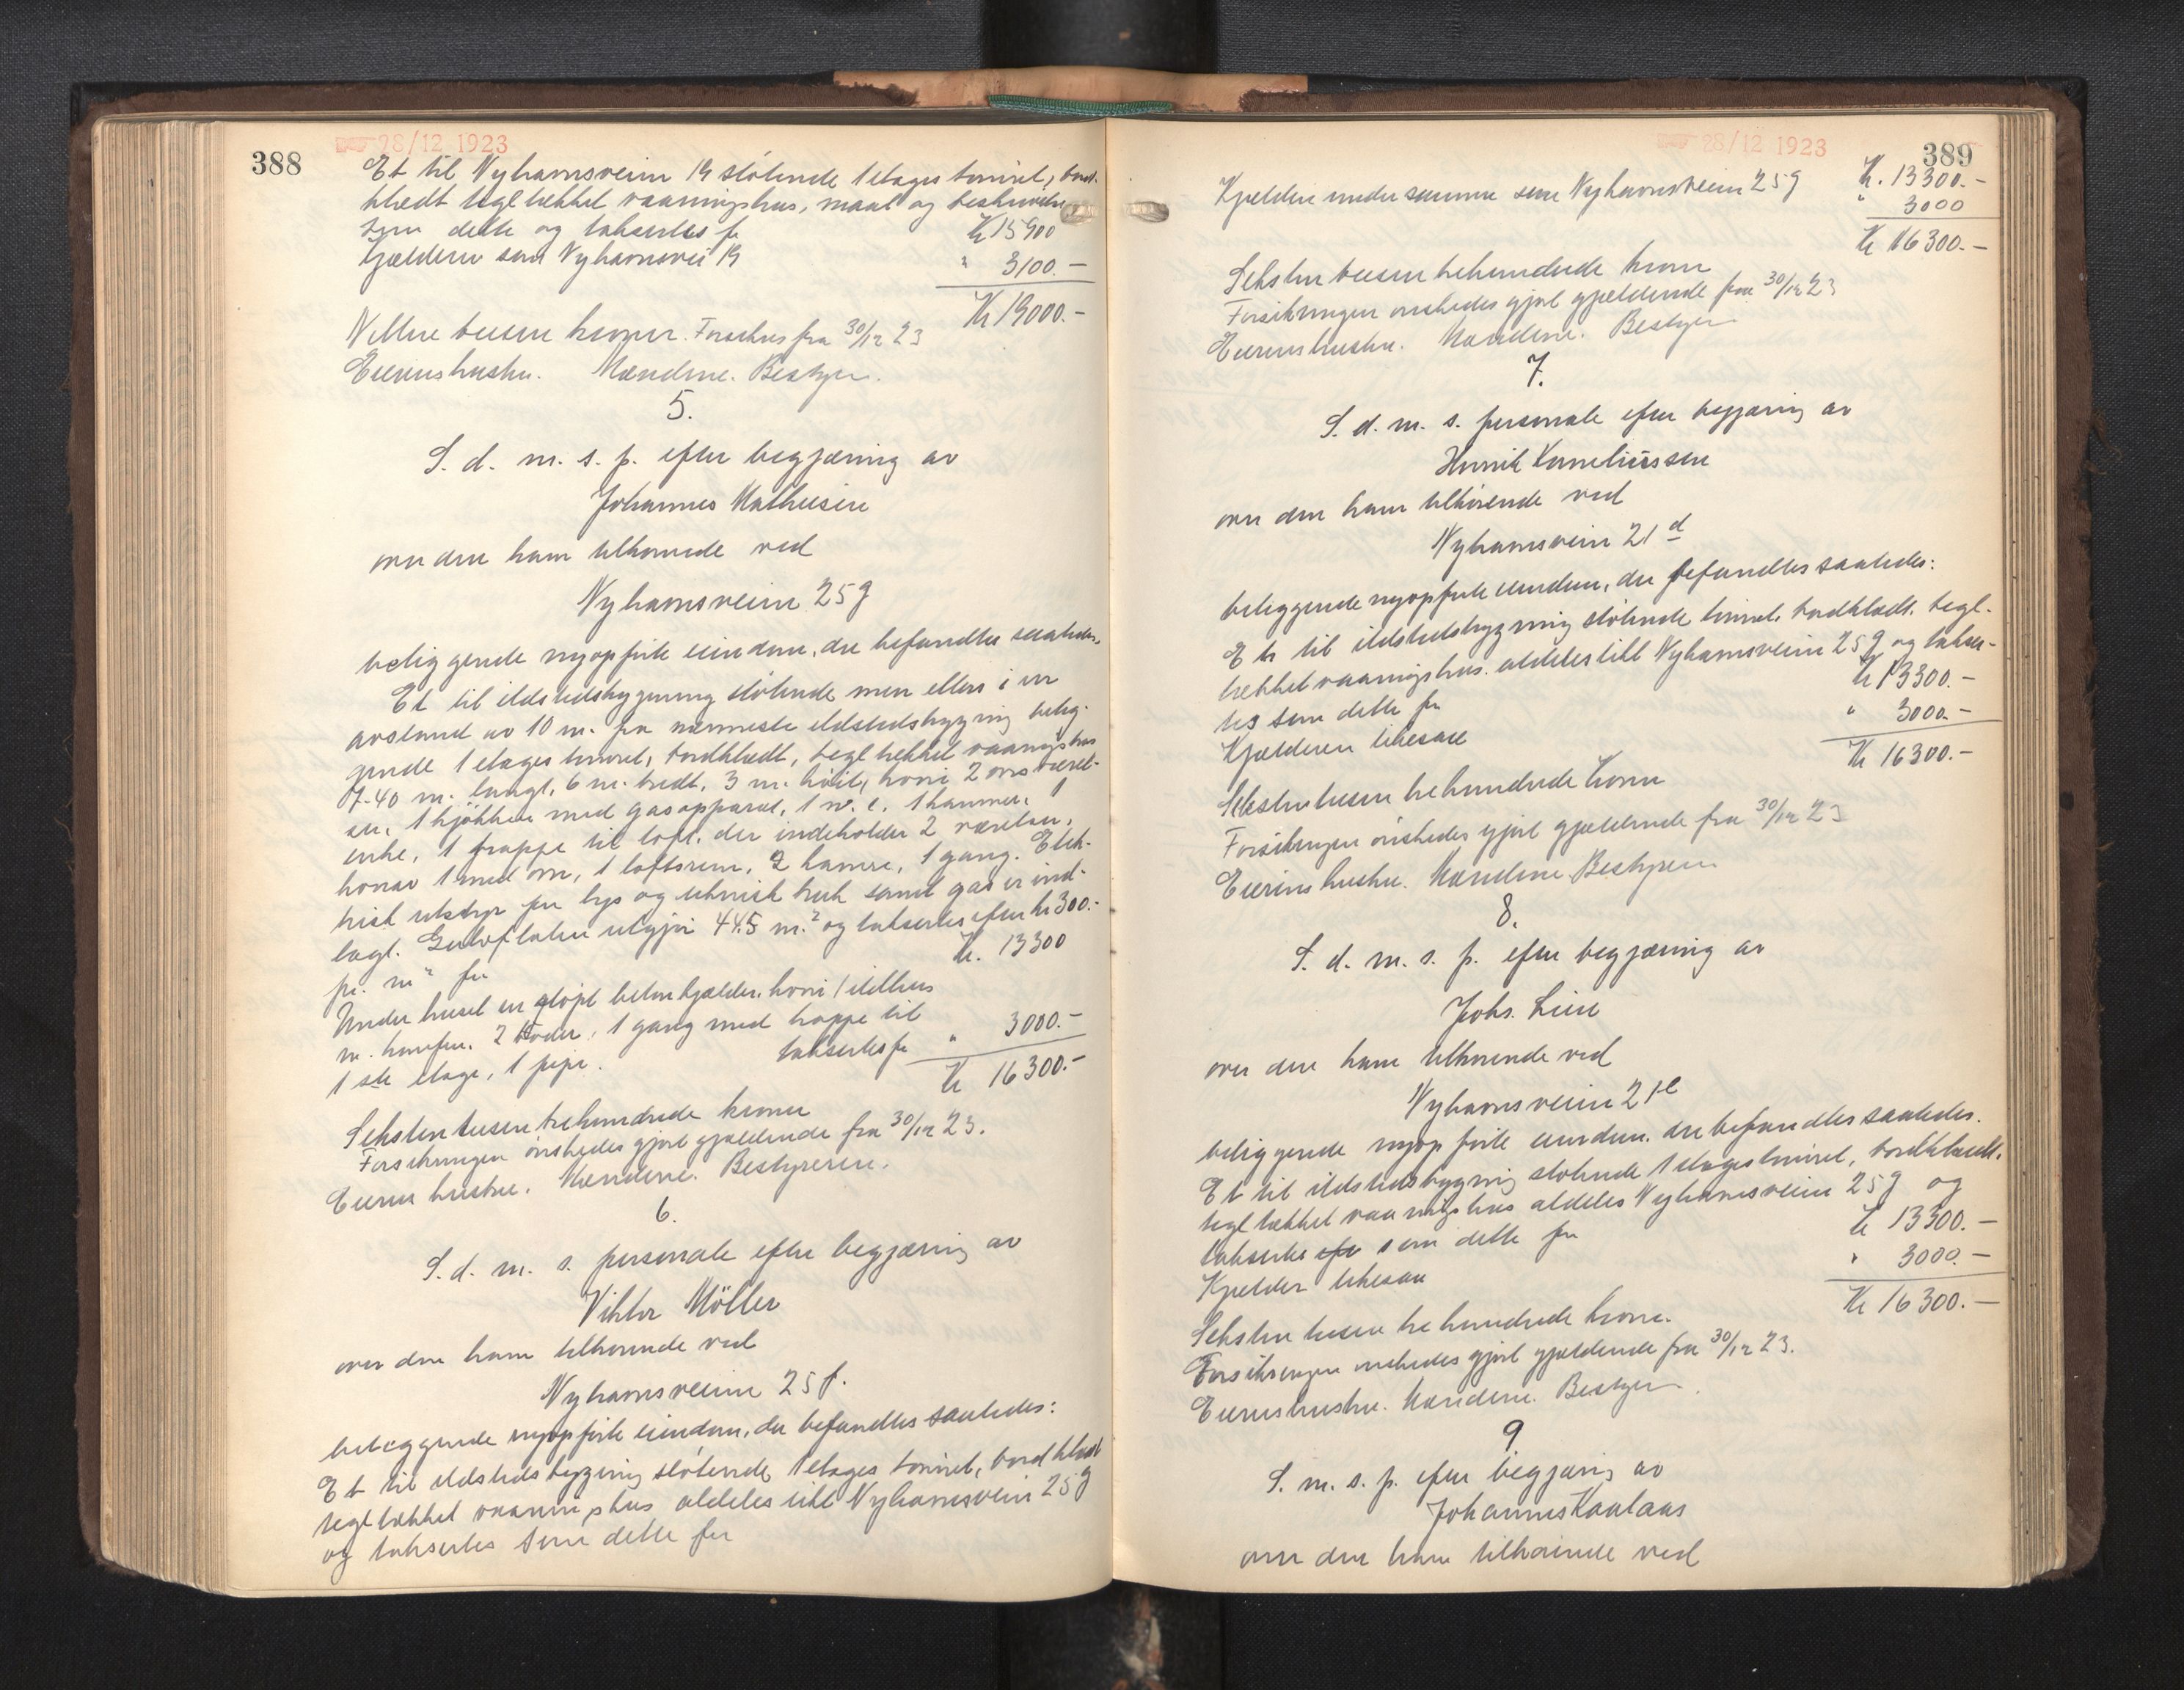 28/12 1923
388
Et til Nyhavnsveien 19 stötende 1 etages tömret, bord-
klædt tegltækket vaaningshus, maal og beskrivelse
som dette og taksertes for Kr 15900
Kjælderen som Nyhavnsvei 19 " 3100.-
Kr 19000.-
Nitten tusen kroner. Forsikres fra 30/12 23
Eierens hustru. Mændene. Bestyrer.
5.
S. d. m. s. p. efter begjæring av
Johannes Mathiesen
over den ham tilhörende ved
Nyhavnsveien 25g
beliggende nyopförte eiendom, der befandtes saaledes.
Et til ildstedsbygning stötende men ellers i en
avstand av 10 m. fra nærmeste ildstedsbygning belig-
gende 1 etages tömret, bordklædt, tegltækket vaaningshus
7.40 m. langt, 6 m. bredt, 3 m. höit, hvori 2 ovnsværel-
ser, 1 kjökken med gasapparat, 1 w. c. 1 kammer, 1
entre, 1 trappe til loft, der indeholder 2 værelser,
hvorav 1 med ovn, 1 loftsrum, 2 kamre, 1 gang. Elek-
trisk utstyr for lys og teknisk bruk samt gas er ind-
lagt. Gulvflaten utgjör 44.5 m.² og takseres efter kr 300.-
pr. m² for Kr. 13300
Under huset en stöpt betonkjælder, hvori 1 ildhus
m. komfur, 2 boder, 1 gang med trappe til
1ste etage, 1 pipe. taksertes for " 3000.-
Kr 16300.-
Seksten tusen trehundrede kroner
Forsikringen önskedes gjort gjældende fra 30/12 23.
Eierens hustru. Mændene. Bestyreren.
6.
S. d. m. s. personale efter begjæring av
Viktor Möller
over den ham tilhörende ved
Nyhavnsveien 25f.
beliggende nyopförte eiendom, der befandtes saaledes:
Et til ildstedsbygning stötende 1 etages tömret, bordklædt
tegltækket vaaningshus aldeles likt Nyhavnsveien 25g
og takseres som dette for
28/12 1923
389
Kr. 13300.-
Kjælderen under samme som Nyhavnsveien 25g " 3000
Kr 16300.-
Seksten tusen trehundrede kroner
Forsikringen önskedes gjort gjældende fra 30/12 23
Eierens hustru. Mændene. Bestyrer
7.
S. d. m. s. personale efter begjæring av
Henrik Korneliussen
over den ham tilhörende ved
Nyhavnsveien 21d
beliggende nyopförte eiendom, der befandtes saaledes:
Et til ildstedsbygning stötende tömret, bordklædt, tegl-
tækket vaaningshus, aldeles likt Nyhavnsveien 25g og takser-
tes som dette for Kr 13300.-
Kjælderen likesaa " 3000.-
Kr 16300.-
Seksten tusen trehundrede kroner
Forsikringen önskedes gjort gjældende fra 30/12 23
Eierens hustru. Mændene. Bestyreren
8.
S. d. m. s. p. efter begjæring av
Johs. Lien
over den ham tilhörende ved
Nyhavnsveien 21e
beliggende nyopförte eiendom, der befandtes saaledes.
Et til ildstedsbygning stötende 1 etages tömret, bordklædt,
tegltækket vaaningshus aldeles Nyhavnsveien 25g og
takseres efter som dette for Kr 13300.-
Kjælder likesaa " 3000.-
Kr 16300.-
Seksten tusen trehundrede kroner.
Forsikringen önskedes gjort gjældende fra 30/12 23.
Eierens hustru. Mændene. Bestyrer.
9
S. m. s. p. efter begjæring av
Johannes Kaalaas
over den ham tilhörende ved